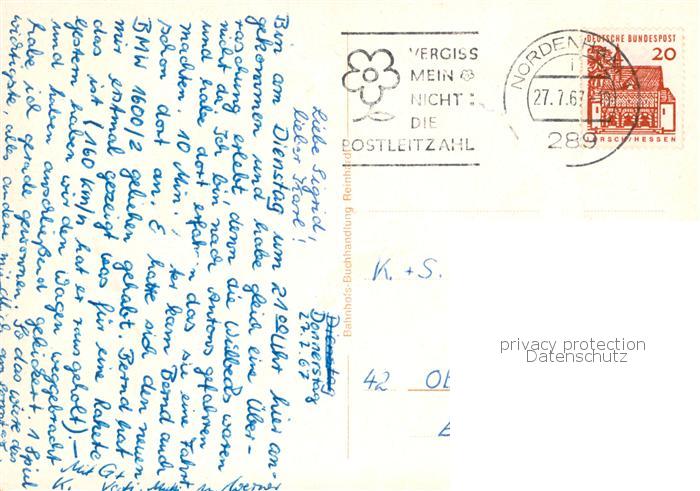 Donnerstag
27.7.67
Liebe Sigrid,
lieber Karl!
Bin am Dienstag um 21 00 Uhr hier an-
gekommen und habe gleich eine Über-
raschung erlebt, denn die waren
nicht da. Ich bin nach Antons gefahren
und habe dort erfahren das sie eine Fahrt
machten. 10 Min. kam Bernd auch
schon dort an. E hatte sich den neuen
BMW 1600/2 geliehen gehabt. Bernd hat
mir erstmal gezeigt was für eine Rakete
das ist (160 km/h hat er rausgeholt).–
Gestern haben wir den Wagen weggebracht
und haben anschließend gekickert. 1 Spiel
habe ich gerade gewonnen. So das wäre das
wichtigste, alles andere mündlich
Mit
K.
VERGISS
MEIN
NICHT:
DIE
POSTLEITZAHL
NORDENH
27.7.67
289
DEUTSCHE BUNDESPOST
20
LORSCH/HESSEN
Bahnhofs-Buchhandlung Reinhard
K. + S.
42 Ob
privacy protection
Datenschutz